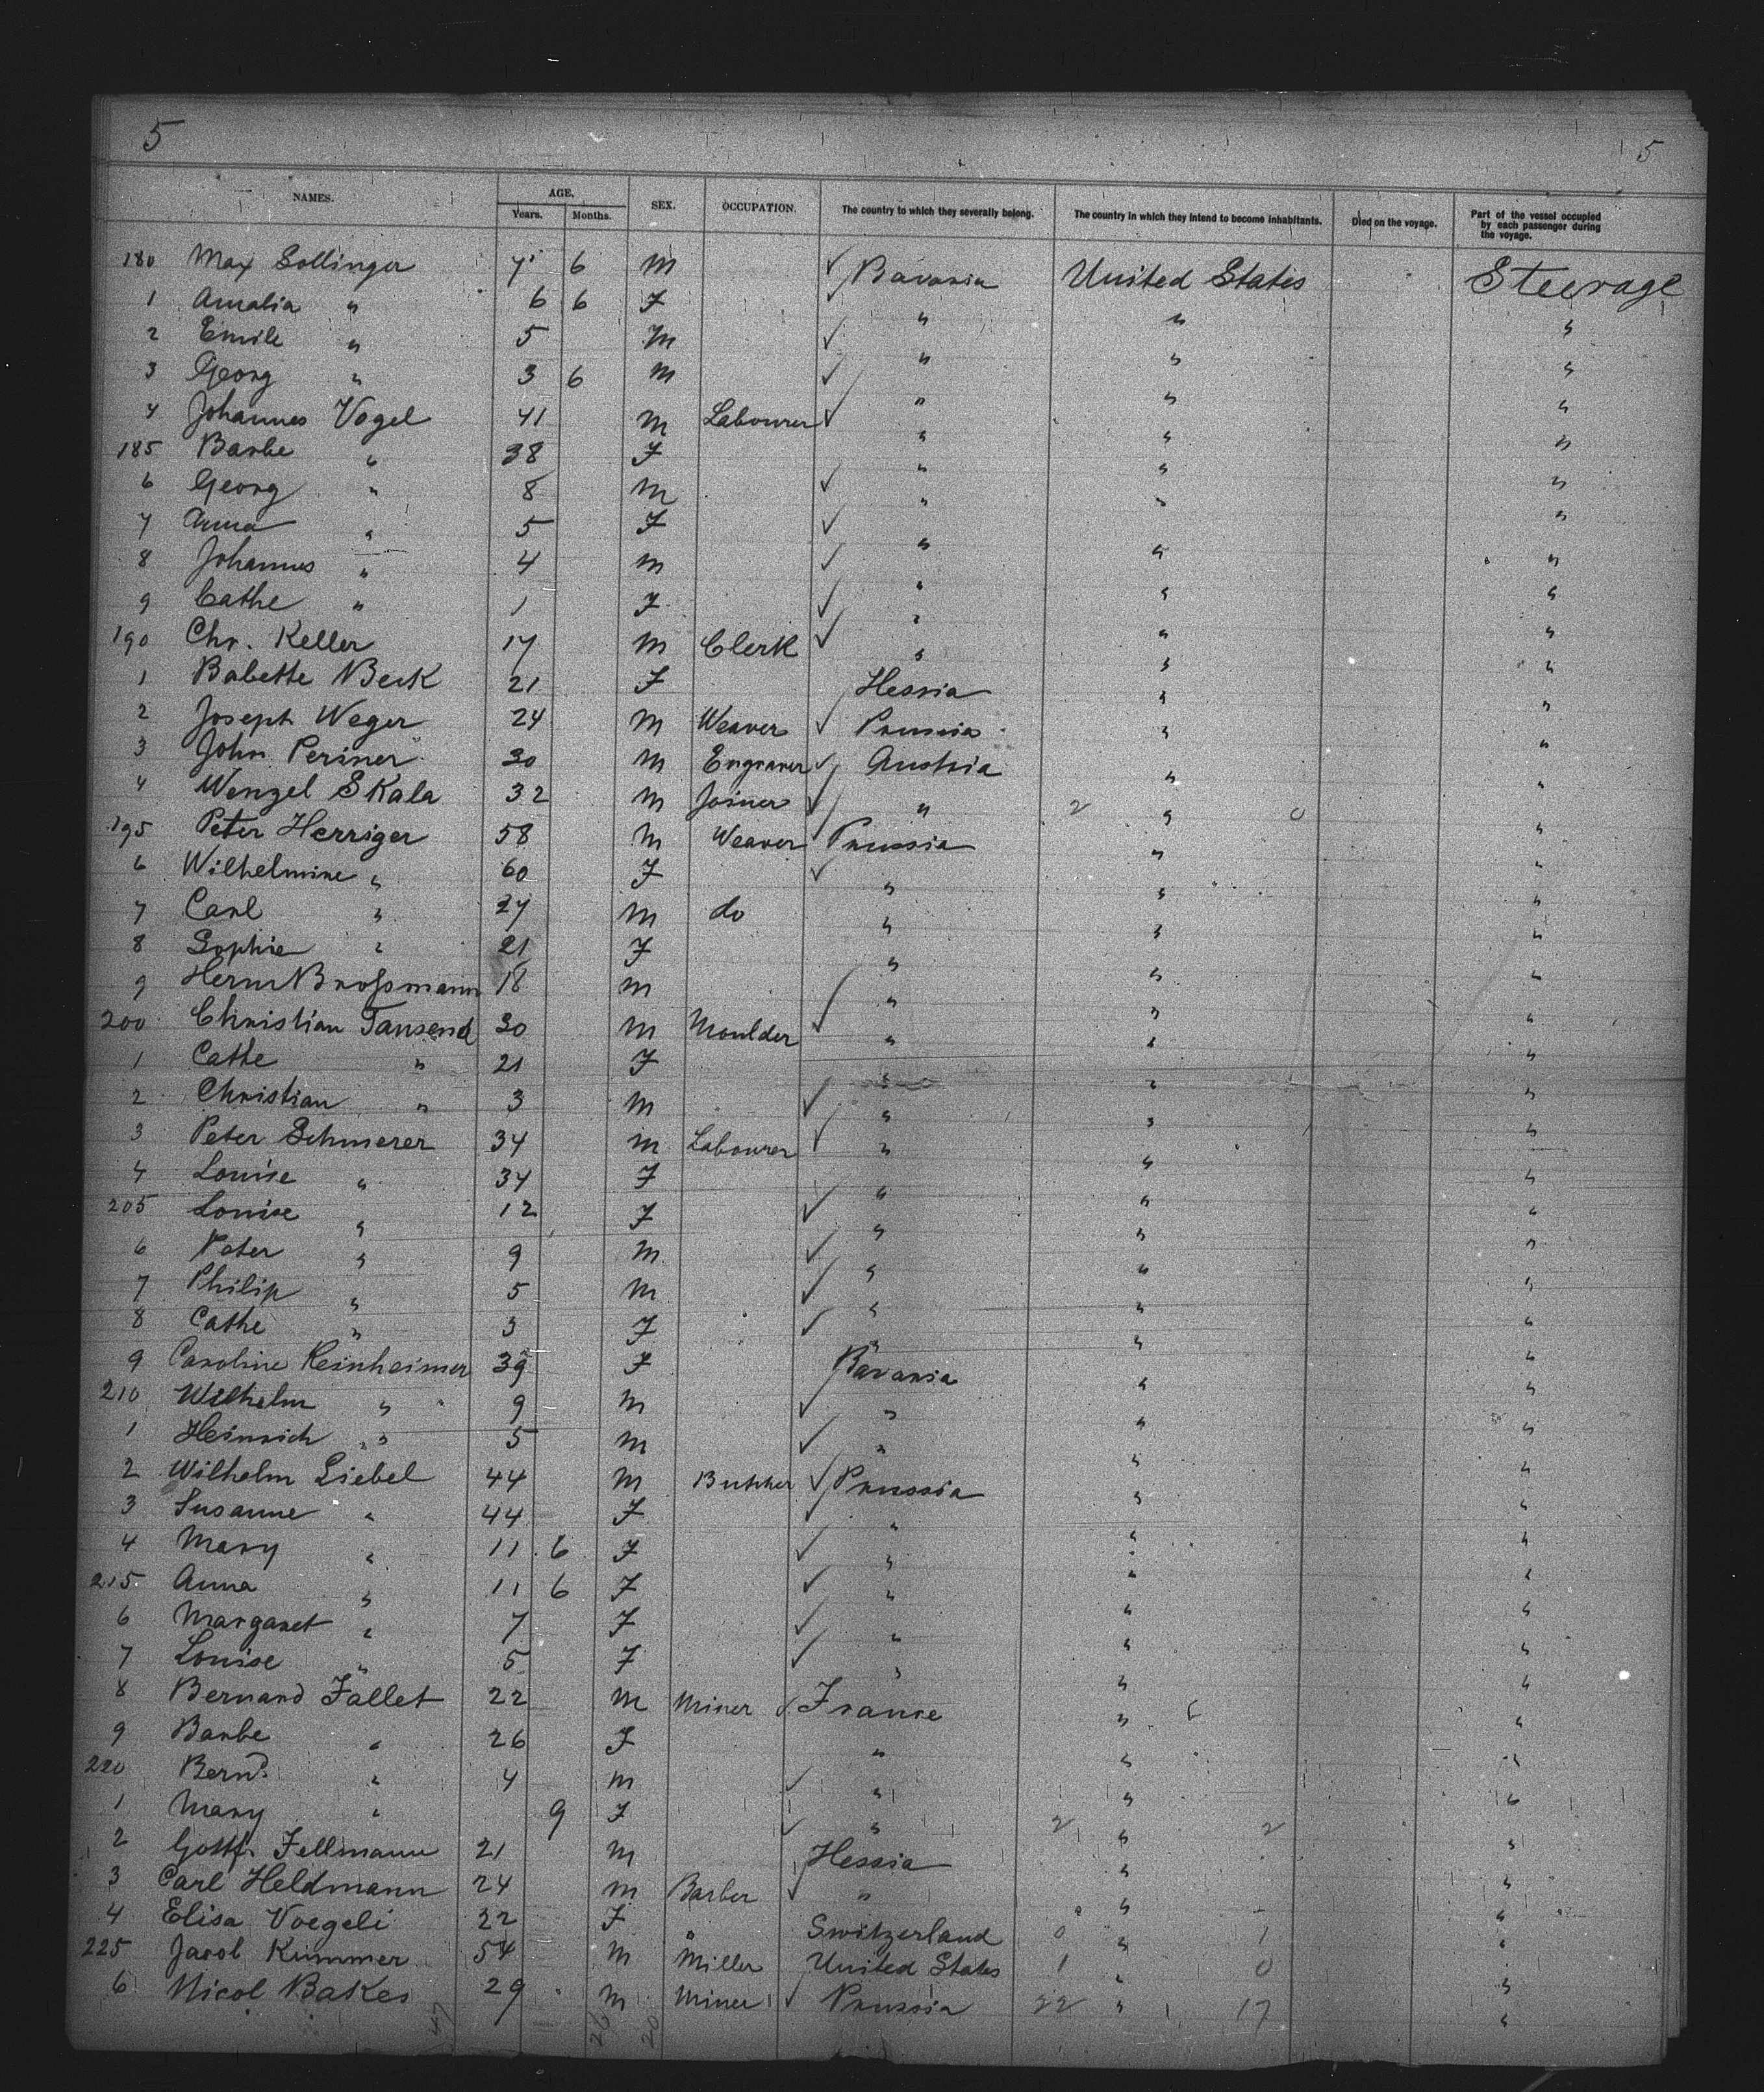 5 5
NAMES. AGE. Years. Months. SEX. OCCUPATION. The country to which they severally belong. The country in which they intend to become inhabitants. Died on the voyage. Part of the vessel occupied by each passenger during the voyage.
180 Max Sollinger 7 6 M Bavaria United States Steerage
1 Amalia " 6 6 F " " "
2 Emile " 5 M " " "
3 Georg " 3 6 M " " "
4 Johannes Vogel 41 M Labourer " " "
185 Barbe " 38 F " " "
6 Georg " 8 M " " "
7 Anna " 5 F " " "
8 Johannes " 4 M " " "
9 Cathe " 1 F " " "
190 Chr. Keller 17 M Clerk " " "
1 Babette Beck 21 F Hessia " "
2 Joseph Weger 24 M Weaver Prussia " "
3 John Periner 30 M Engraver Austria " "
4 Wenzel Skala 32 M Joiner " 2 " 0 "
195 Peter Herriger 58 M Weaver Prussia " "
6 Wilhelmine " 60 F " " "
7 Carl " 27 M do " " "
8 Sophie " 21 F " " "
9 Herm Broßmann 18 M " " "
200 Christian Tausend 30 M Moulder " " "
1 Cathe " 21 F " " "
2 Christian " 3 M " " "
3 Peter Schmerer 34 M Labourer " " "
4 Louise " 34 F " " "
205 Louise " 12 F " " "
6 Peter " 9 M " " "
7 Philip " 5 M " " "
8 Cathe " 3 F " " "
9 Caroline Reinheimer 39 F Bavaria " "
210 Wilhelm " 9 M " " "
1 Heinrich " 5 M " " "
2 Wilhelm Liebel 44 M Butcher Prussia " "
3 Susanne " 44 F " " "
4 Mary " 11 6 F " " "
215 Anna " 11 6 F " " "
6 Margaret " 7 F " " "
7 Louise " 5 F " " "
8 Bernard Fallet 22 M Miner France " "
9 Barbe " 26 F " " "
220 Bernd " 4 M " " "
1 Mary " 9 F " 2 " 2 "
2 Gottf. Fellmann 21 M Hessia " "
3 Carl Heldmann 24 M Barber " " "
4 Elisa Voegeli 22 F Switzerland 0 " 1 "
225 Jacob Kummer 54 M Miller United States 1 " 0 "
6 Nicol Bakes 29 M Miner Prussia 22 " 17 "
47 26 20